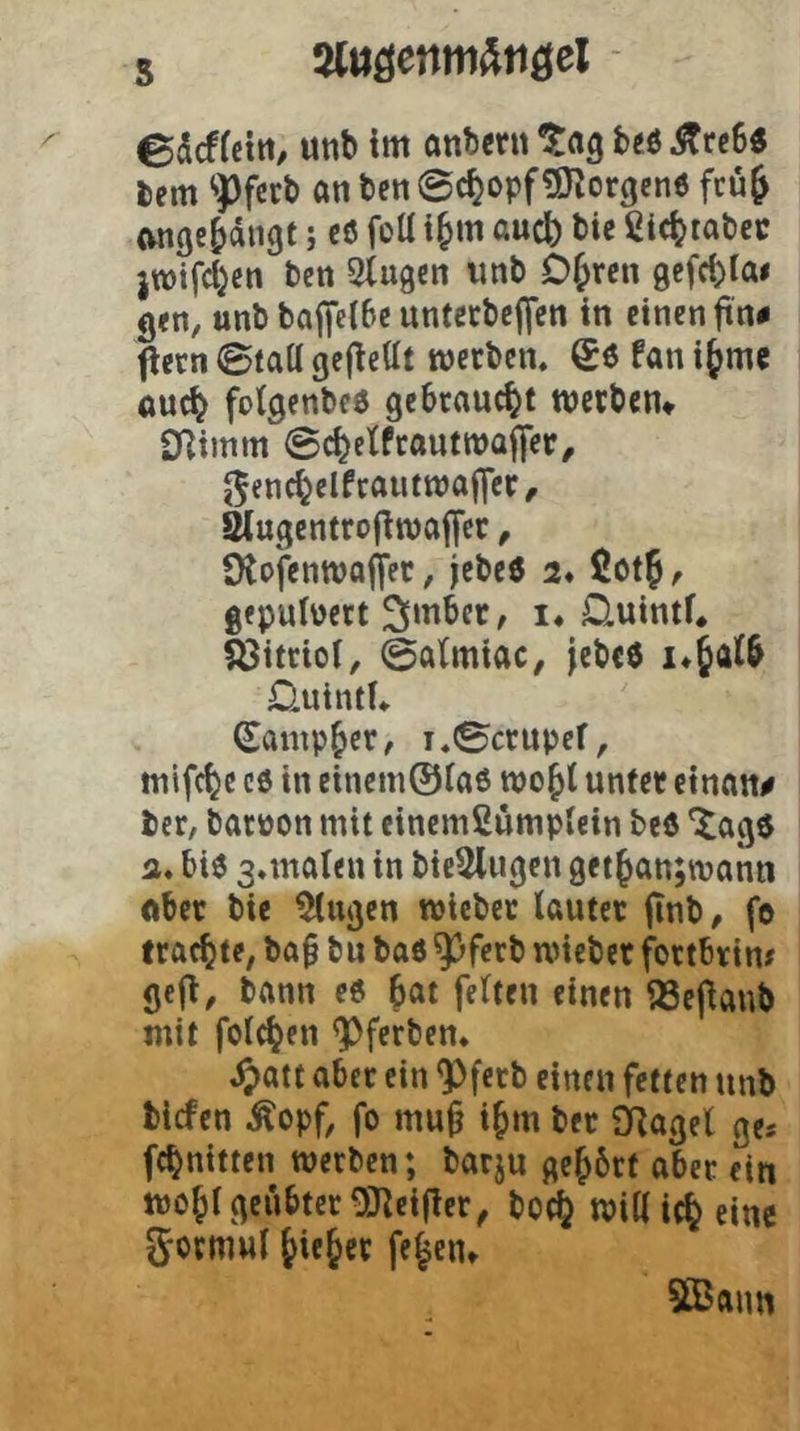 s Augenmängel
Säcklein, und im andern Tag des Krebs
dem Pferd an den Schopf Morgens früh
angehängt; es soll ihm auch die Lichtader
zwischen den Augen und Ohren geschla-
gen, und dasselbe unterdessen in einen fin-
stern Stall gestellt werden. Es kan ihme
auch folgendes gebraucht werden.
Nimm Schelkrautwasser,
Fenchelkrautwasser,
Augentrostwasser,
Rosenwasser, jedes 2. Loth,
gepulvert Imber, 1. Quintl.
Vitriol, Salmiac, jedes 1. halb
Quintl.
Campher, 1. Scrupel,
mische es in einem Glas wohl unter einan-
der, darvon mit einem Lümplein des Tags
2. bis 3. malen in die Augen gethan; wann
aber die Augen wieder lauter sind, so
trachte, daß du das Pferd wieder fortbrin-
gest, dann es hat selten einen Bestand
mit solchen Pferden.
Hatt aber ein Pferd einen fetten und
dicken Kopf, so muß ihm der Nagel ge-
schnitten werden; darzu gehört aber ein
wohl geübter Meister, doch will ich eine
Formul hieher setzen.
Wann